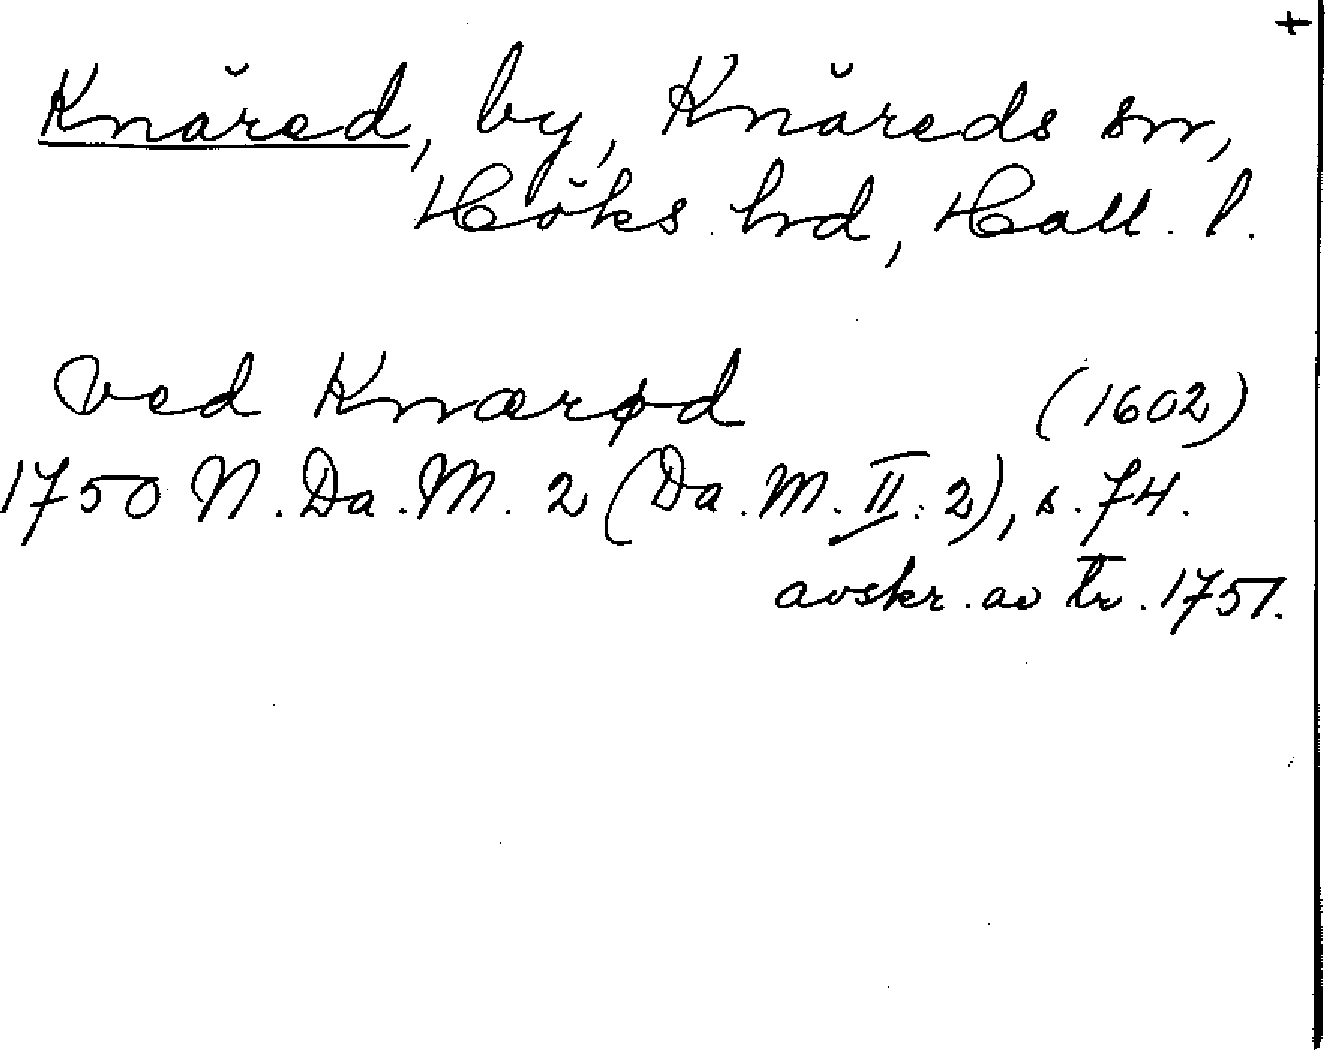 +
Knäred, by, Knäreds sn,
Höks hrd, Hall. l.
Ved Knærød (1602)
1750 N. Da. M. 2 (Da. M. II: 2), s. 74.
avskr. av tr. 1751.